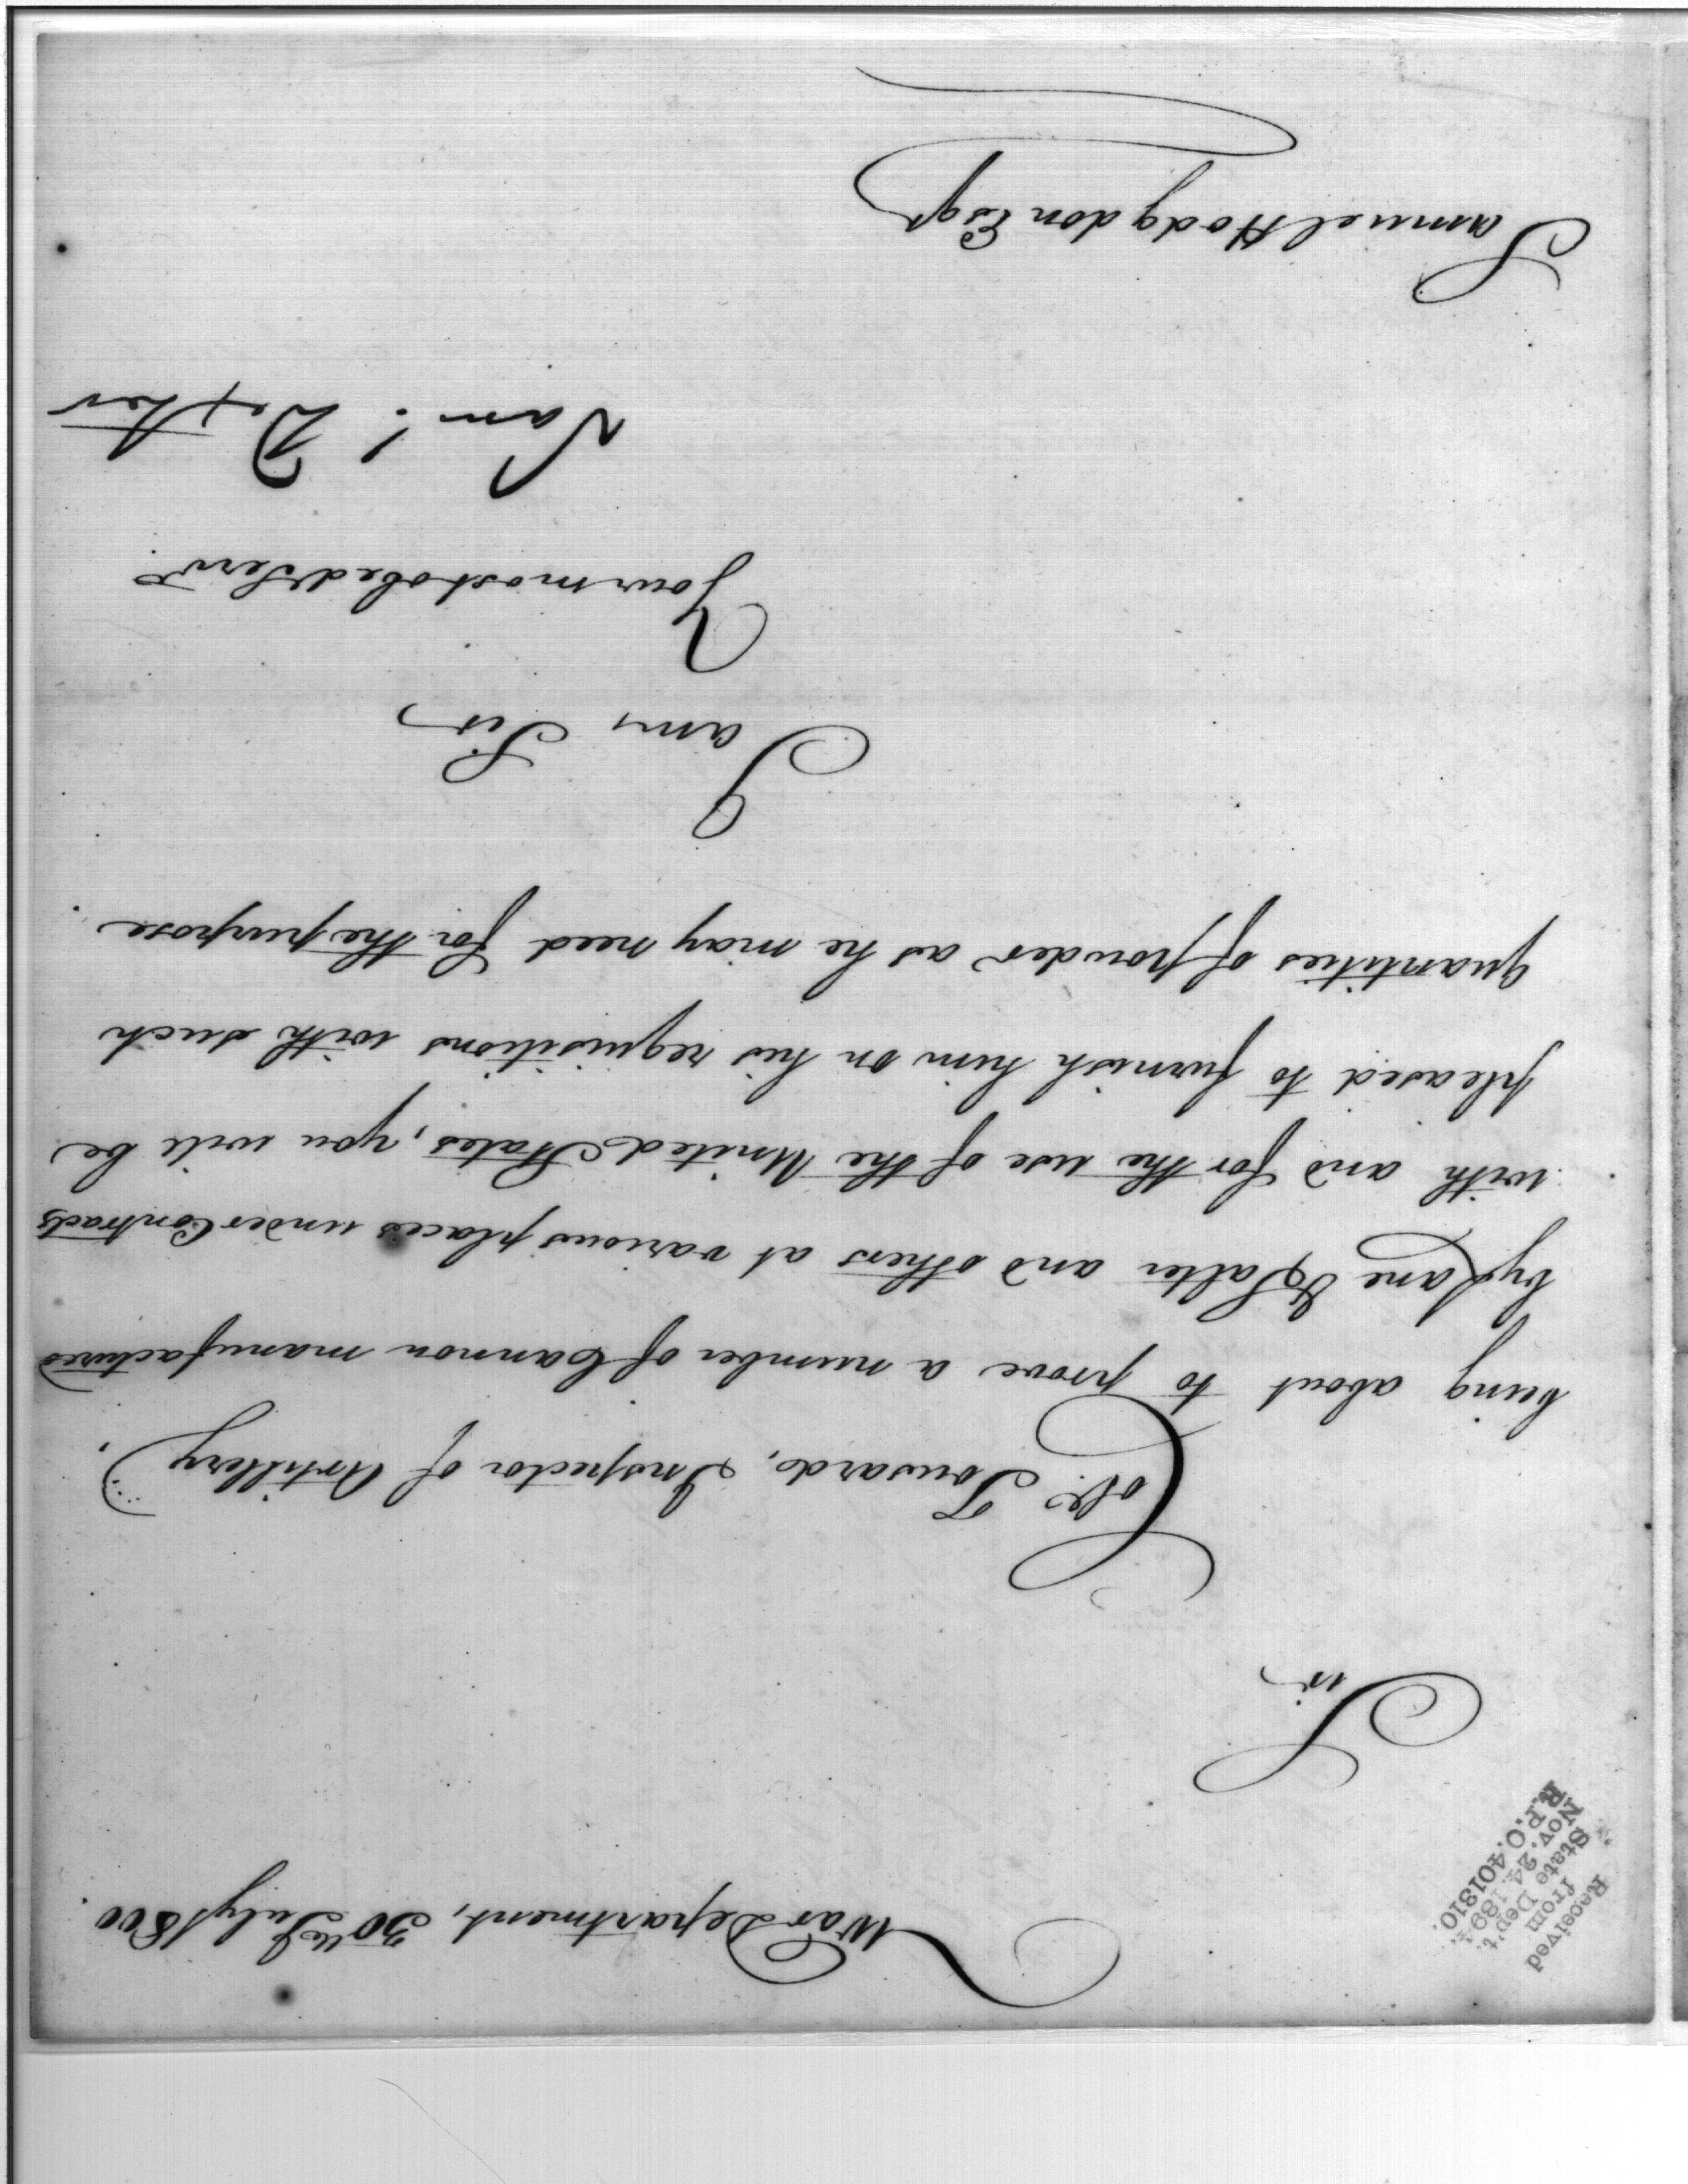 Received
from
State Dep't.
Nov. 24 1894.
R.P.O. 401310.
War Department, 30th July 1800
Sir
Colo. Tousard, Inspector of Artillery,
being about to prove a number of Cannon manufactured
by Lane & Salter and others at various places under Contracts
with and for the use of the United States, you will be
pleased to furnish him on his requisitions with such
quantities of powder as he may need for the purpose.
I am, Sir,
Your most obed Servt.
Saml. Dexter
Samuel Hodgdon Esqr